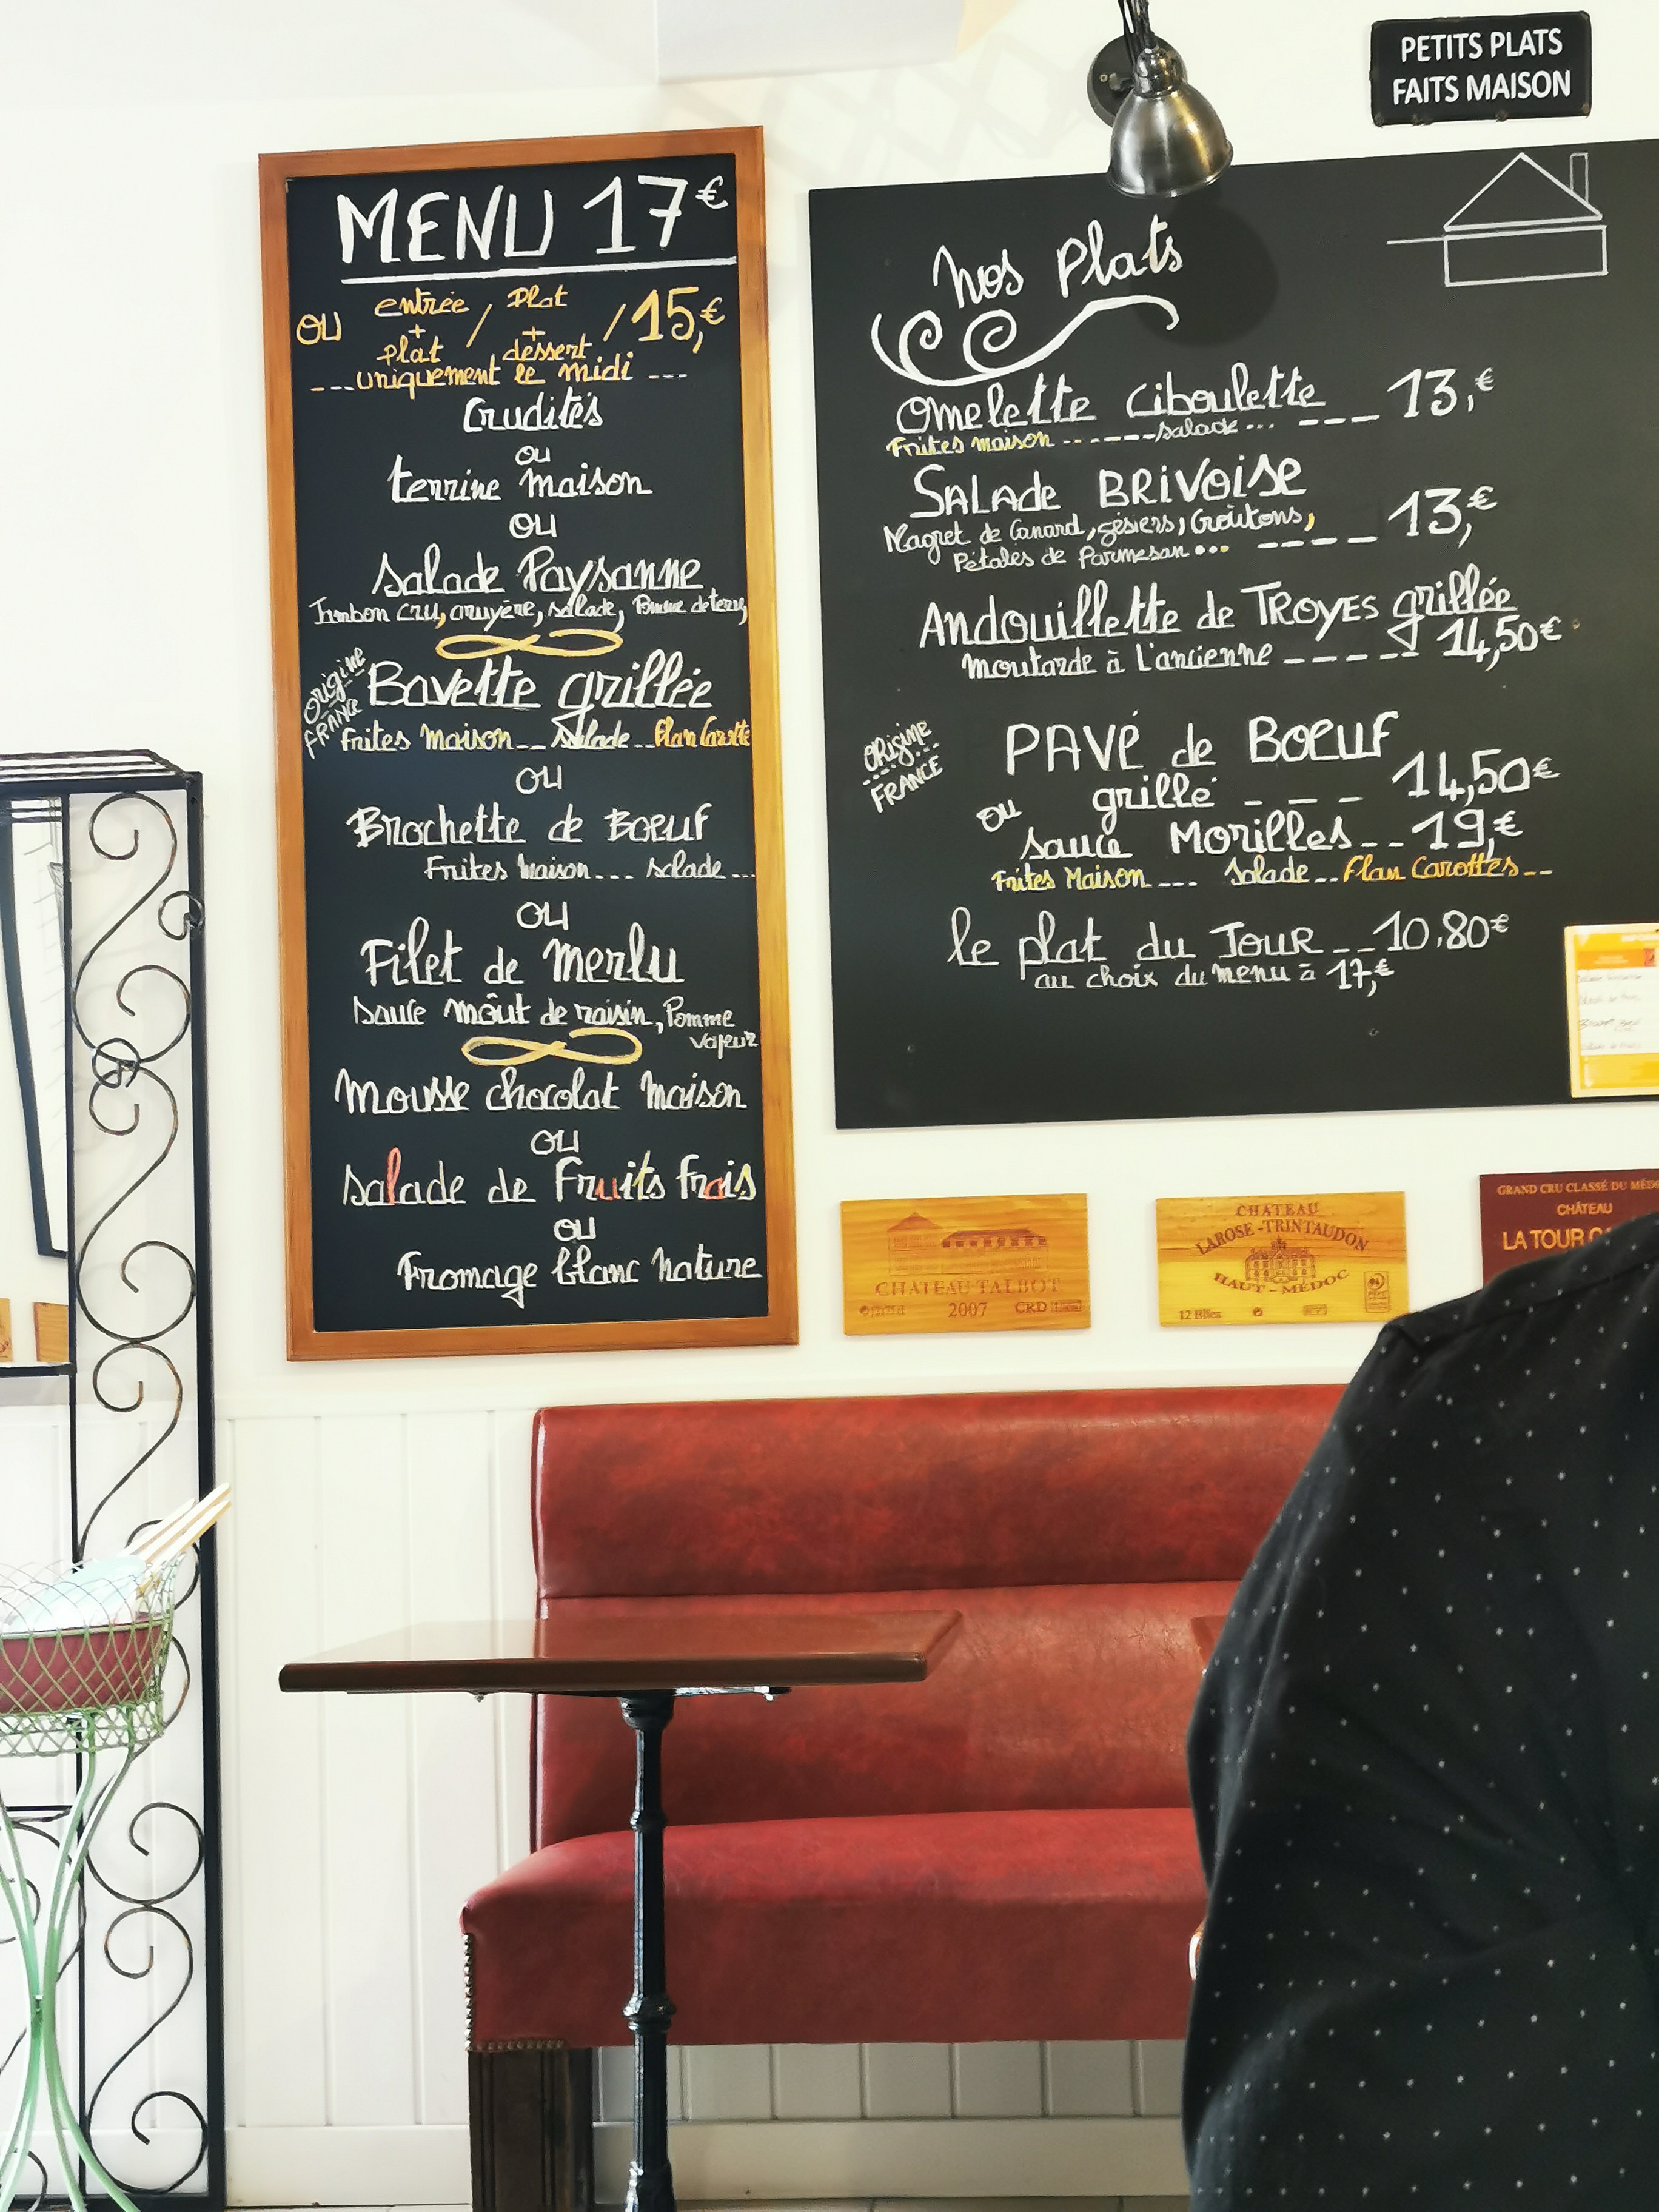 PETITS PLATS
FAITS MAISON
MENU 17€
OU entrée + plat / Plat + dessert / 15,€
---uniquement le midi ---
Crudités
ou
terrine maison
OU
Salade Paysanne
Jambon cru, gruyère, salade, Pomme de terre,
Origine
FRANCE
Bavette grillée
Frites Maison... Salade... Flan Carotte
OU
Brochette de BOEUF
Frites Maison... salade...
OU
Filet de merlu
Sauce moût de raisin, Pomme
vapeur
Mousse chocolat Maison
OU
Salade de Fruits frais
ou
Fromage blanc Nature
Nos Plats
Omelette Ciboulette --- 13,€
Frites maison ------ salade... ---
SALAde BRIVOISe
Magret de Canard, gésiers, Croûtons, ---- 13,€
Pétales de Parmesan...
Andouillette de TROYES grillée
Moutarde à l'ancienne ----- 14,50€
ORigine
FRANCE
PAVÉ de BOEUF
grillé --- 14,50€
ou
sauce Morilles-- 19,€
Frites Maison --- Salade-- Flan Carottes--
le plat du JOUR -- 10.80€
au choix du menu à 17,€
CHATEAU TALBOT
2007 CRD
CHATEAU
LAROSE-TRINTAUDON
HAUT-MÉDOC
12 Btles
GRAND CRU CLASSÉ DU
CHÂTEAU
LA TOUR